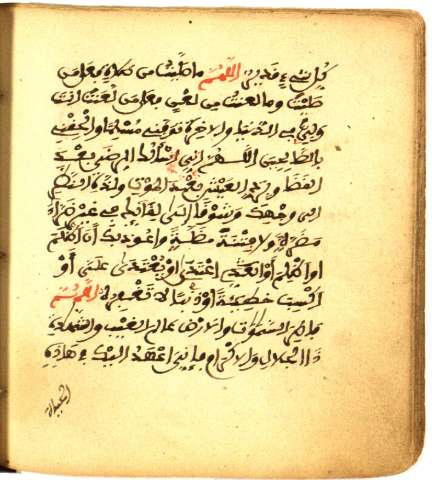 كل شيء قدير اللهم ما صليت من صلاة فعلى من
صليت وما لعنت من لعن فعلى من لعنت انت
وليي في الدنيا والاخرة توفني مسلما والحقني
بالصالحين اللهم اني اسألك الرضى بعد
القضا وبرد العيش بعد الموت ولذة النظر
الى وجهك وشوقا الى لقائك في غير ضراء
مضرة ولا فتنة مضلة واعوذ بك أن أظلم
او اظلم أو اعتدى او يعتدى علي أو
اكسب خطيئة أو ذنبا لا تغفره اللهم
فاطر السموات والارض عالم الغيب والشهادة
ذا الجلال والاكرام فإني اعهد اليك في هذه
الحياة